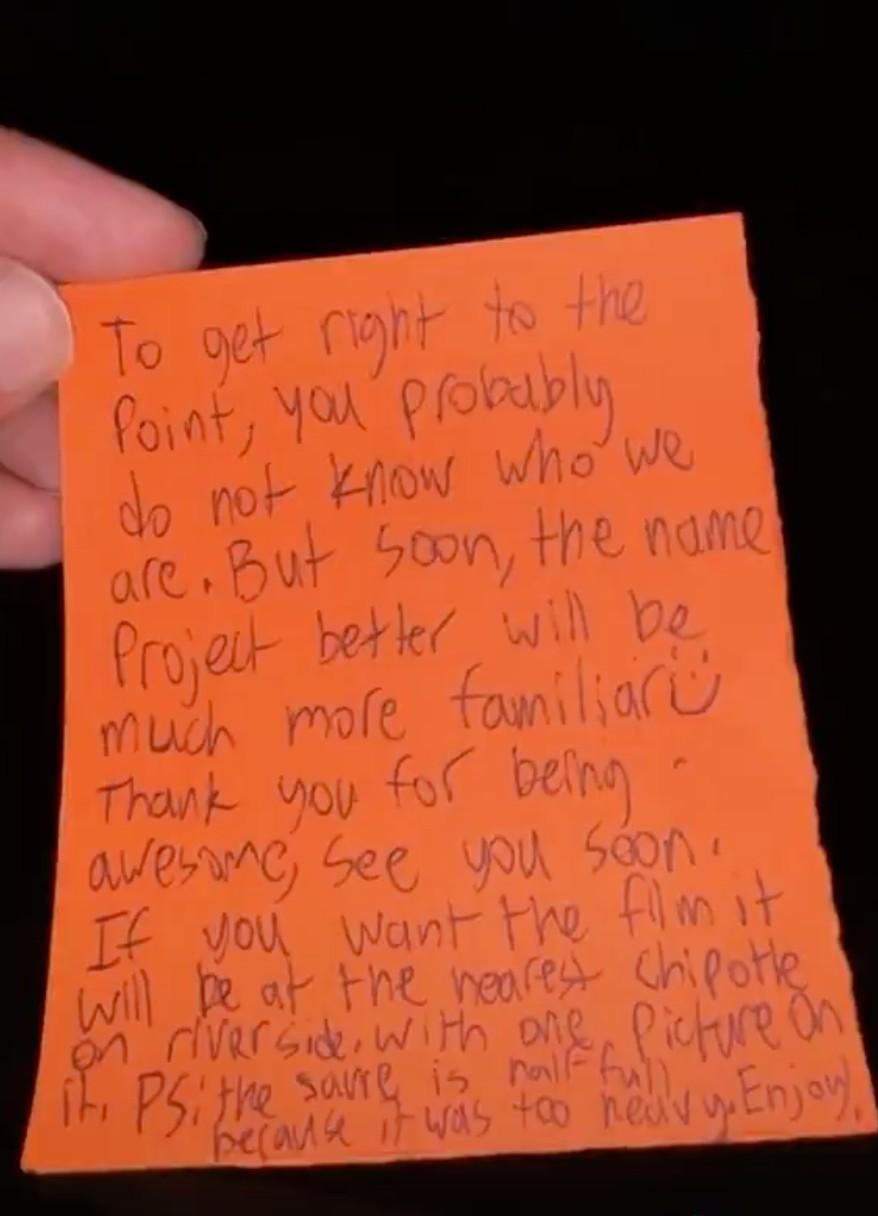 To get right to the
Point, you probably
do not know who we
are. But soon, the name
Project better will be
much more familiar
Thank you for being
awesome, see you soon.
If you want the film it
will be at the nearest chipotle
on riverside. with one picture on
it. PS: the is half full
because it was too heavy. Enjoy.